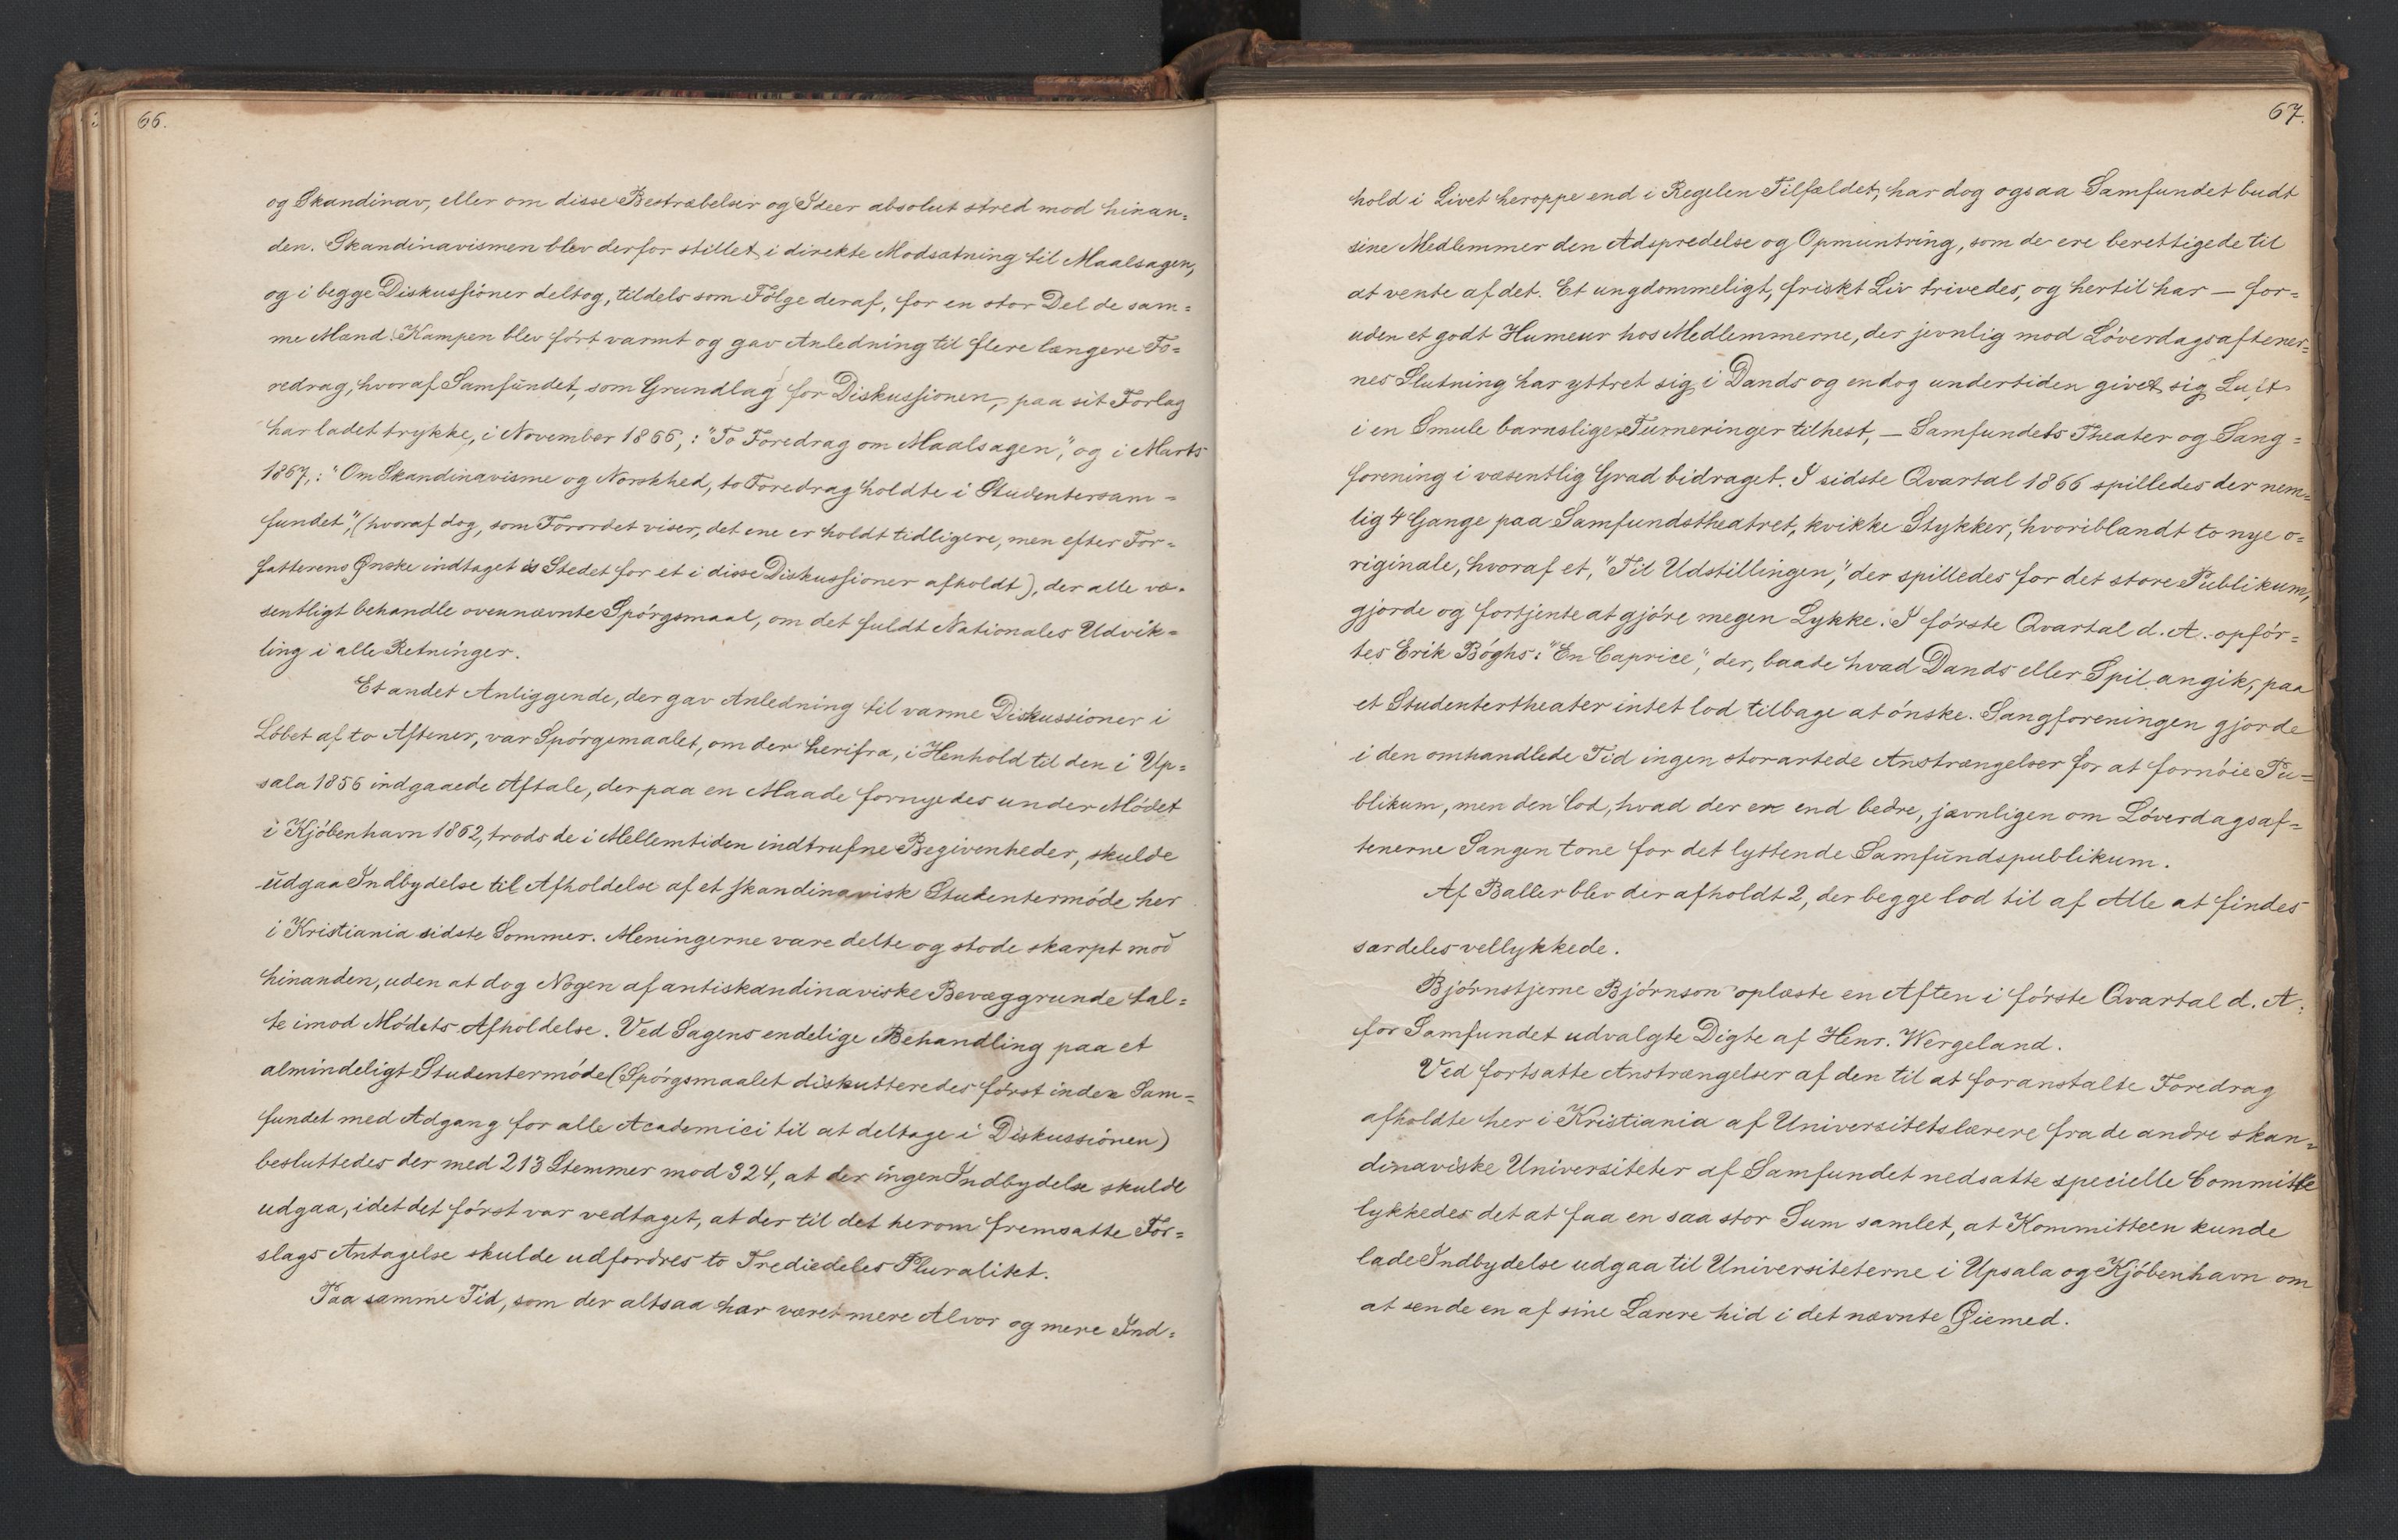 66.
og Skandinav, eller om disse Bestræbelser og Ideer absolut stred mod hinan=
den. Skandinavismen blev derfor stillet i direkte Modsætning til Maalsagen,
og i begge Diskussioner deltog, tildels som Følge deraf, for en stor Del de sam=
me Mænd. Kampen blev ført varmt og gav Anledning til flere længere Fo=
redrag, hvoraf Samfundet, som Grundlag for Diskussionen, paa sit Forlag
har ladet trykke, i November 1866,: "To Foredrag om Maalsagen", og i Marts
1867,: "Om Skandinavisme og Norskhed, to Foredrag holdte i Studentersam=
fundet", (hvoraf dog, som Forordet viser, det ene er holdt tidligere, men efter For=
fatterens Ønske indtaget i Stedet for et i disse Diskussioner afholdt), der alle væ=
sentligt behandle ovennævnte Spørgsmaal, om det fuldt Nationales Udvik=
ling i alle Retninger.
Et andet Anliggende, der gav Anledning til varme Diskussioner i
Løbet af to Aftener, var Spørgsmaalet, om der herifra, i Henhold til den i Up=
sala 1856 indgaaede Aftale, der paa en Maade fornyedes under Mødet
i Kjøbenhavn 1862, trods de i Mellemtiden indtrufne Begivenheder, skulde
udgaa Indbydelse til Afholdelse af et skandinavisk Studentermøde her
i Kristiania sidste Sommer. Meningerne vare delte og stode skarpt mod
hinanden, uden at dog Nogen af antiskandinaviske Bevæggrunde tal=
te imod Mødets Afholdelse. Ved Sagens endelige Behandling paa et
almindeligt Studentermøde (Spørgsmaalet diskutteredes først inden Sam=
fundet med Adgang for alle Academici til at deltage i Diskussionen)
besluttedes der med 213 Stemmer mod 324, at der ingen Indbydelse skulde
udgaa, idet det først var vedtaget, at der til det herom fremsatte For=
slags Antagelse skulde udfordres to Trediedeles Pluralitet.
Paa samme Tid, som der altsaa har været mere Alvor og mere Ind=
67.
hold i Livet heroppe end i Regelen Tilfældet, har dog ogsaa Samfundet budt
sine Medlemmer den Adspredelse og Opmuntring, som de ere berettigede til
at vente af det. Et ungdommeligt, friskt Liv trivedes, og hertil har – for=
uden et godt Humeur hos Medlemmerne, der jevnlig mod Løverdagsaftener=
nes Slutning har yttret sig i Dands og endog undertiden givet sig Luft
i en Smule barnslige Turneringer tilhest, – Samfundets Theater og Sang=
forening i væsentlig Grad bidraget. I sidste Qvartal 1866 spilledes der nem=
lig 4 Gange paa Samfundstheatret, kvikke Stykker, hvoriblandt to nye o=
riginale, hvoraf et, "Til Udstillingen," der spilledes for det store Publikum,
gjorde og fortjente at gjøre megen Lykke. I første Qvartal d. A. opfør=
tes Erik Bøghs: "En Caprice", der, baade hvad Dands eller Spil angik, paa
et Studentertheater intet lod tilbage at ønske. Sangforeningen gjorde
i den omhandlede Tid ingen storartede Anstrængelser for at fornøie Pu=
blikum, men den lod, hvad der er end bedre, jævnligen om Løverdagsaf=
tenerne Sangen tone for det lyttende Samfundspublikum.
Af Baller blev der afholdt 2, der begge lod til af Alle at findes
særdeles vellykkede.
Bjørnstjerne Bjørnson oplæste en Aften i første Qvartal d. A.
for Samfundet udvalgte Digte af Henr. Wergeland.
Ved fortsatte Anstrængelser af den til at foranstalte Foredrag
afholdte her i Kristiania af Universitetslærere fra de andre skan=
dinaviske Universiteter af Samfundet nedsatte specielle Committe
lykkedes det at faa en saa stor Sum samlet, at Kommitteen kunde
lade Indbydelse udgaa til Universiteterne i Upsala og Kjøbenhavn om
at sende en af sine Lærere hid i det nævnte Øiemed.